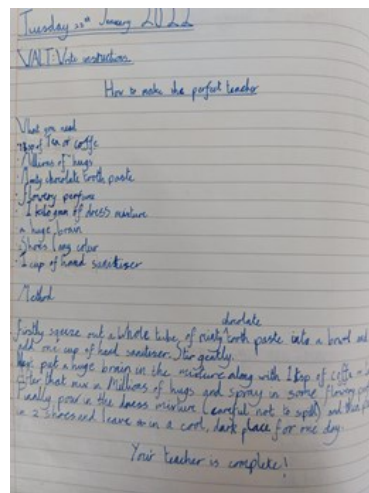 Tuesday 25th January 2022
WALT: Write instructions.
How to make the perfect teacher
What you need
1 tsp of Tea or coffe
Millions of hugs
Minty chocolate tooth paste
flowery perfume
1 kilogram of dress mixture
a huge brain
Shoes (any colour
1 cup of hand sanitiser
Method
chocolate
firstly squeze out a whole tube, of minty tooth paste into a bowl and
add one cup of hand sanitiser. Stir gently.
Next put a huge brain in the mixture along with 1 tsp of coffe or
After that mix in Millions of hugs and spray in some flowery
Finally pour in the dress mixture (careful not to spill) and then
in 2 shoes and leave in a cool, dark place for one day.
Your teacher is complete!